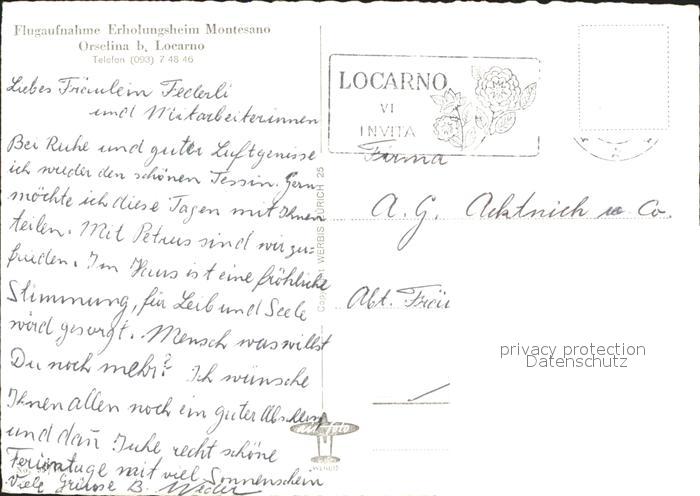 Flugaufnahme Erholungsheim Montesano
Orselina b. Locarno
Telefon (093) 7 48 46
Liebes Fräulein Federli
und Mitarbeiterinnen
Bei Ruhe und guter Luft geniesse
ich wieder den schönen Tessin. Gern
möchte ich diese Tagen mit Ihnen
teilen. Mit Petrus sind wir zu=
frieden. Im Haus ist eine fröhliche
Stimmung, für Leib und Seele
wird gesorgt. Mensch was willst
Du noch mehr? Ich wünsche
Ihnen allen noch ein guter
und dañ Juhe recht schöne
Ferientage mit viel Sonnenschein
Viele Grüsse B.
Copyright WERBIS ZÜRICH 25
air foto
WERBIS
LOCARNO
VI
INVITA
Firma
A. G. & Co.
Abt. Fräu
privacy protection
Datenschutz